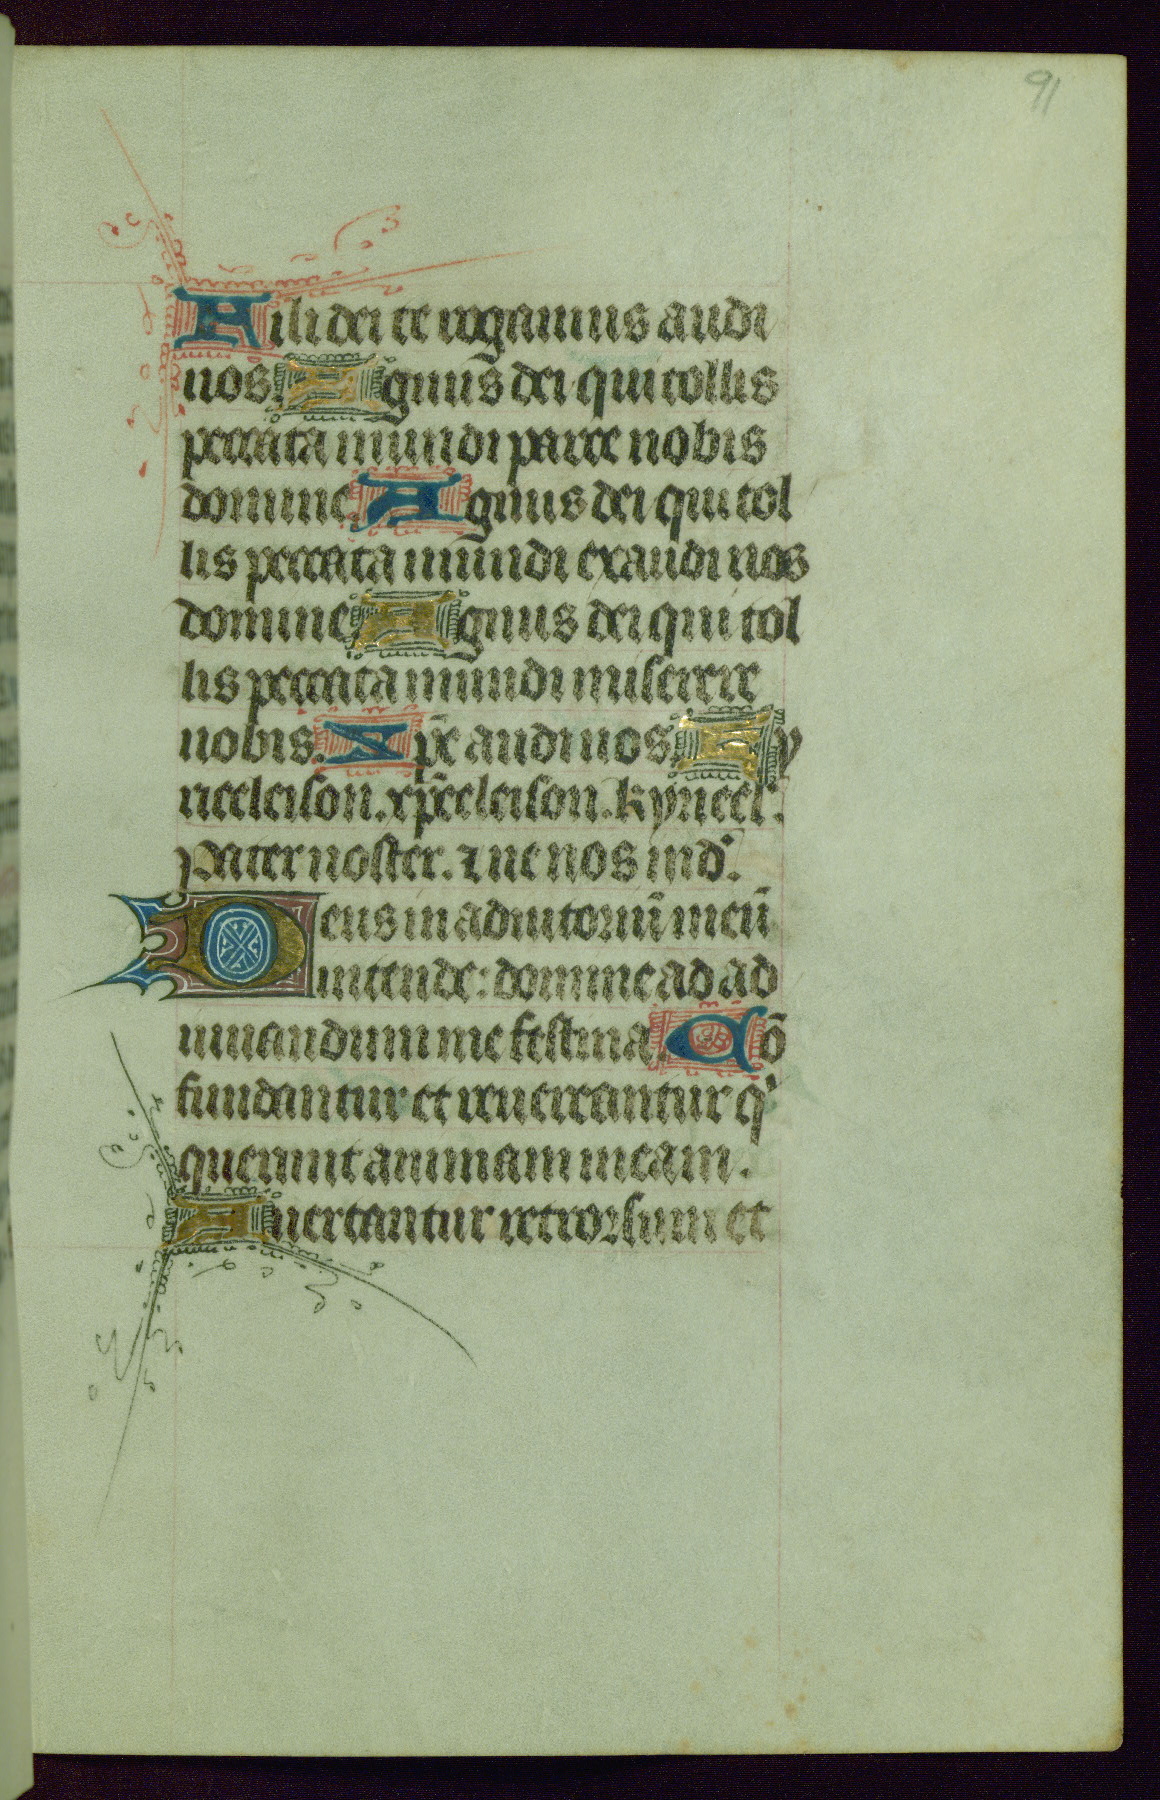 91
Fili dei te rogamus audi
nos. Agnus dei qui tollis
peccata mundi parce nobis
domine. Agnus dei qui tol
lis peccata mundi exaudi nos
domine Agnus dei qui tol
lis peccata mundi miserere
nobis. Xpe audi nos. Ky
rieeleison. xpeeleison. kyrieel'.
Pater noster. ⁊ ne nos ind'.
Deus in adiutoriū meū
intende: domine ad ad
iuuandum me festina. Cō
fundantur et reuereantur q'
querunt animam meam.
Auertantur retrorsum et